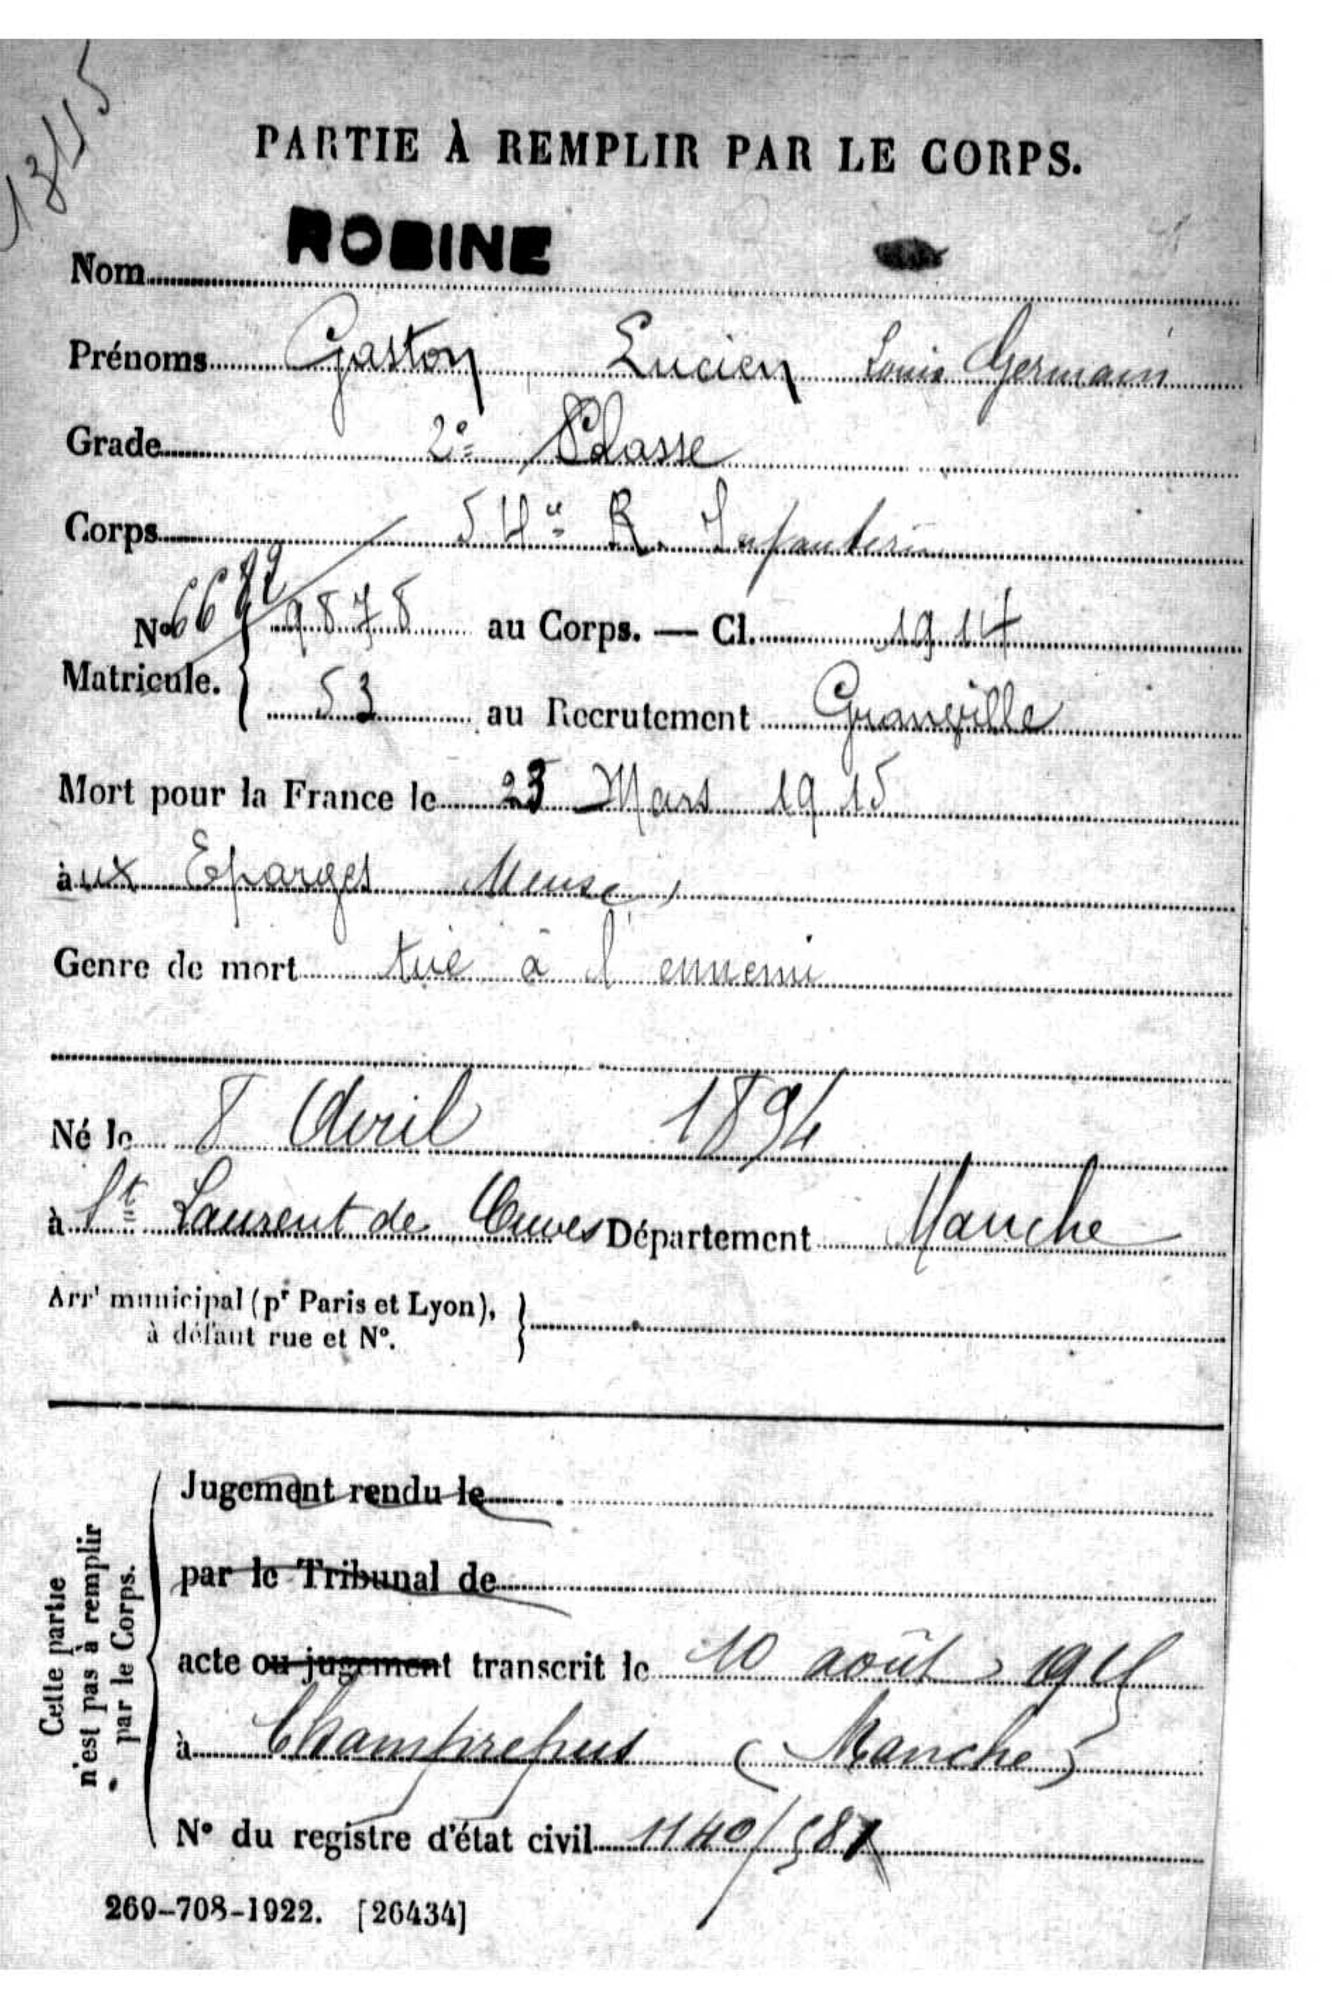 13115
PARTIE À REMPLIR PAR LE CORPS.
Nom ROBINE
Prénoms Gaston Lucien Louis Germain
Grade 2e Classe
Corps 54e R. Infanterie
No 6682 9878 au Corps. — Cl. 1914
Matricule. 53 au Recrutement Granville
Mort pour la France le 23 Mars 1915
àux Eparges Meuse
Genre de mort tué à l'ennemi
Né le 8 Avril 1894
à St Laurent de Cuves Département Manche
Arrt municipal (pr Paris et Lyon),
à défaut rue et N°.
Cette partie
n'est pas à remplir
par le Corps.
Jugement rendu le
par le Tribunal de
acte ou jugement transcrit le 10 août 1915
à Champrepus (Manche)
N° du registre d'état civil 1140/581
269-708-1922. [26434]